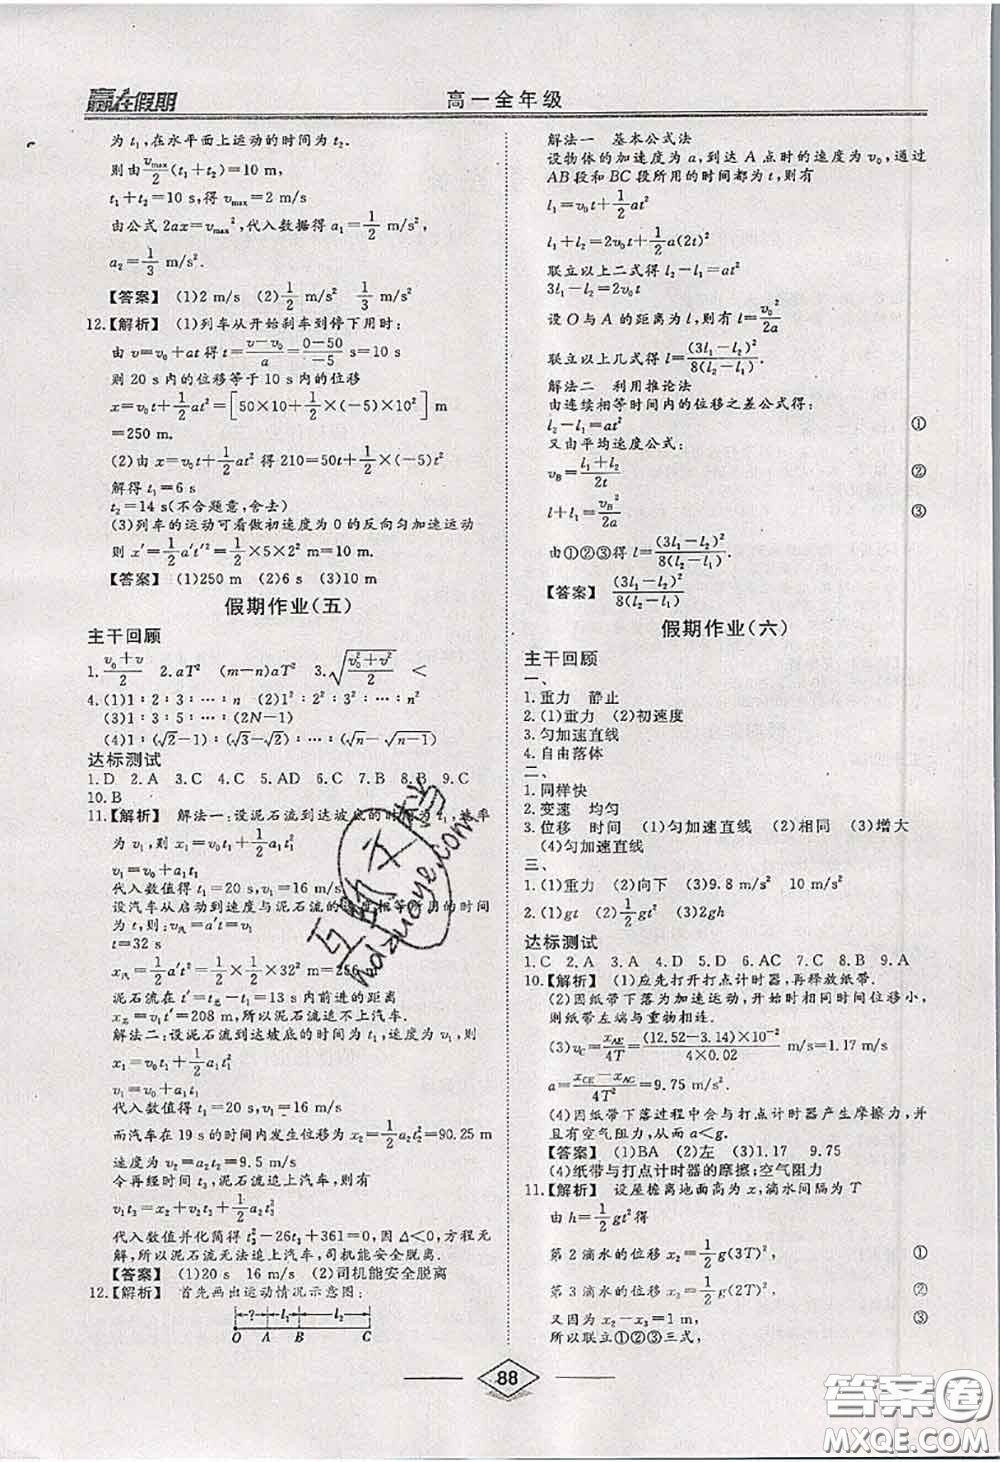 赢在假期
高一全年级
为 t₁,在水平面上运动的时间为 t₂.
则由 vmax/2 (t₁+t₂)=10 m,
t₁+t₂=10 s,得 vmax=2 m/s
由公式 2ax=vmax²,代入数据得 a₁=1/2 m/s²,
a₂=1/3 m/s².
【答案】 (1)2 m/s (2)1/2 m/s² 1/3 m/s²
12.【解析】 (1)列车从开始刹车到停下用时:
由 v=v₀+at 得 t=(v-v₀)/a=(0-50)/(-5) s=10 s
则 20 s 内的位移等于 10 s 内的位移
x=v₀t+1/2at²=[50×10+1/2×(-5)×10²] m
=250 m.
(2)由 x=v₀t+1/2at² 得 210=50t+1/2×(-5)t²
解得 t₁=6 s
t₂=14 s(不合题意,舍去)
(3)列车的运动可看做初速度为 0 的反向匀加速运动
则 x′=1/2a′t′²=1/2×5×2² m=10 m.
【答案】 (1)250 m (2)6 s (3)10 m
假期作业(五)
主干回顾
1.(v₀+v)/2 2.aT² (m-n)aT² 3.√((v₀²+v²)/2) <
4.(1)1:2:3:…:n (2)1²:2²:3²:…:n²
(3)1:3:5:…:(2N-1)
(4)1:(√2-1):(√3-√2):…:(√n-√(n-1))
达标测试
1.D 2.A 3.C 4.C 5.AD 6.C 7.B 8.B 9.C
10.B
11.【解析】 解法一:设泥石流到达坡底的时间为 t₁,速率
为 v₁,则 x₁=v₀t₁+1/2a₁t₁²
v₁=v₀+a₁t₁
代入数值得 t₁=20 s,v₁=16 m/s
设汽车从启动到速度与泥石流的速度相等所用的时间
为 t,则:v汽=a′t=v₁
t=32 s
x汽=1/2a′t²=1/2×1/2×32² m=256
泥石流在 t′=t总-t₁=13 s内前进的距离
x泥=v₁t′=208 m,所以泥石流追不上汽车.
解法二:设泥石流到达坡底的时间为 t₁,速度为 v₁,则
x₁=v₀t₁+1/2a₁t₁²
v₁=v₀+a₁t₁
代入数值得 t₁=20 s,v₁=16 m/s
而汽车在 19 s 的时间内发生位移为 x₂=1/2a₂t₂²=90.25 m
速度为 v₂=a₂t₂=9.5 m/s
令再经时间 t₃,泥石流追上汽车,则有
v₁t₃=x₂+v₂t₃+1/2a₂t₃²
代入数值并化简得 t₃²-26t₃+361=0,因 Δ<0,方程无
解,所以泥石流无法追上汽车,司机能安全脱离.
【答案】 (1)20 s 16 m/s (2)司机能安全脱离
12.【解析】 首先画出运动情况示意图:
? l₁ l₂
O A B C
解法一 基本公式法
设物体的加速度为 a,到达 A 点时的速度为 v₀,通过
AB 段和 BC 段所用的时间都为 t,则有
l₁=v₀t+1/2at²
l₁+l₂=2v₀t+1/2a(2t)²
联立以上二式得 l₂-l₁=at²
3l₁-l₂=2v₀t
设 O 与 A 的距离为 l,则有 l=v₀²/2a
联立以上几式得 l=(3l₁-l₂)²/8(l₂-l₁)
解法二 利用推论法
由连续相等时间内的位移之差公式得:
l₂-l₁=at² ①
又由平均速度公式:
vB=(l₁+l₂)/2t ②
l+l₁=vB²/2a ③
由①②③得 l=(3l₁-l₂)²/8(l₂-l₁)
【答案】 (3l₁-l₂)²/8(l₂-l₁)
假期作业(六)
主干回顾
一、
1.重力 静止
2.(1)重力 (2)初速度
3.匀加速直线
4.自由落体
二、
1.同样快
2.变速 均匀
3.位移 时间 (1)匀加速直线 (2)相同 (3)增大
(4)匀加速直线
三、
1.(1)重力 (2)向下 (3)9.8 m/s² 10 m/s²
2.(1)gt (2)1/2gt² (3)2gh
达标测试
1.C 2.A 3.A 4.D 5.D 6.AC 7.C 8.B 9.A
10.【解析】 (1)应先打开打点计时器,再释放纸带.
(2)因纸带下落为加速运动,开始时相同时间位移小,
则纸带左端与重物相连.
(3)vC=xAE/4T=(12.52-3.14)×10⁻²/(4×0.02) m/s=1.17 m/s
a=(xCE-xAC)/4T²=9.75 m/s²
(4)因纸带下落过程中会与打点计时器产生摩擦力,并
且有空气阻力,从而 a<g.
【答案】 (1)BA (2)左 (3)1.17 9.75
(4)纸带与打点计时器的摩擦;空气阻力
11.【解析】 设屋檐离地面高为 x,滴水间隔为 T
由 h=1/2gt²得
第 2 滴水的位移 x₂=1/2g(3T)², ①
第 3 滴水的位移 x₃=1/2g(2T)², ②
又因为 x₂-x₃=1 m, ③
所以联立①②③三式,
88
互助文库
hdzuoye.com
答案圈
MXQE.COM